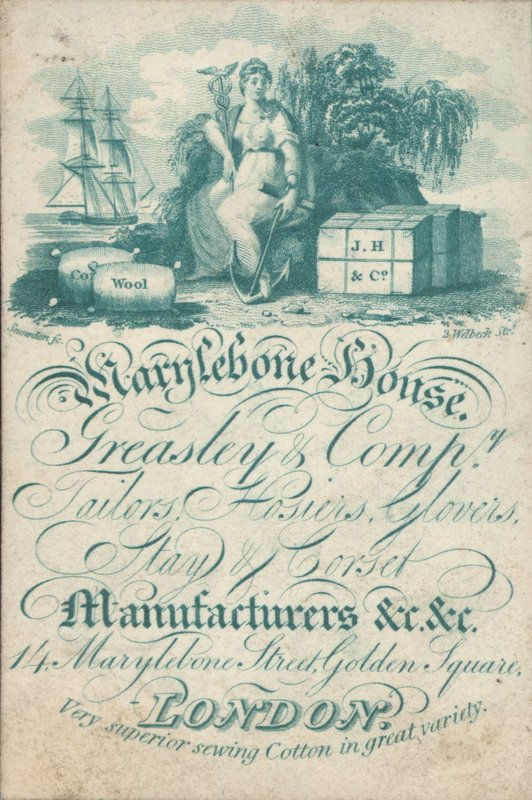 J. H
& Co.
Co
Wool
Snowden sc.
2 Welbeck Str.
Marylebone House.
Greasley & Compy.
Tailors, Hosiers, Glovers,
Stay & Corset
Manufacturers &c. &c.
14, Marylebone Street, Golden Square,
LONDON.
Very superior sewing Cotton in great variety.